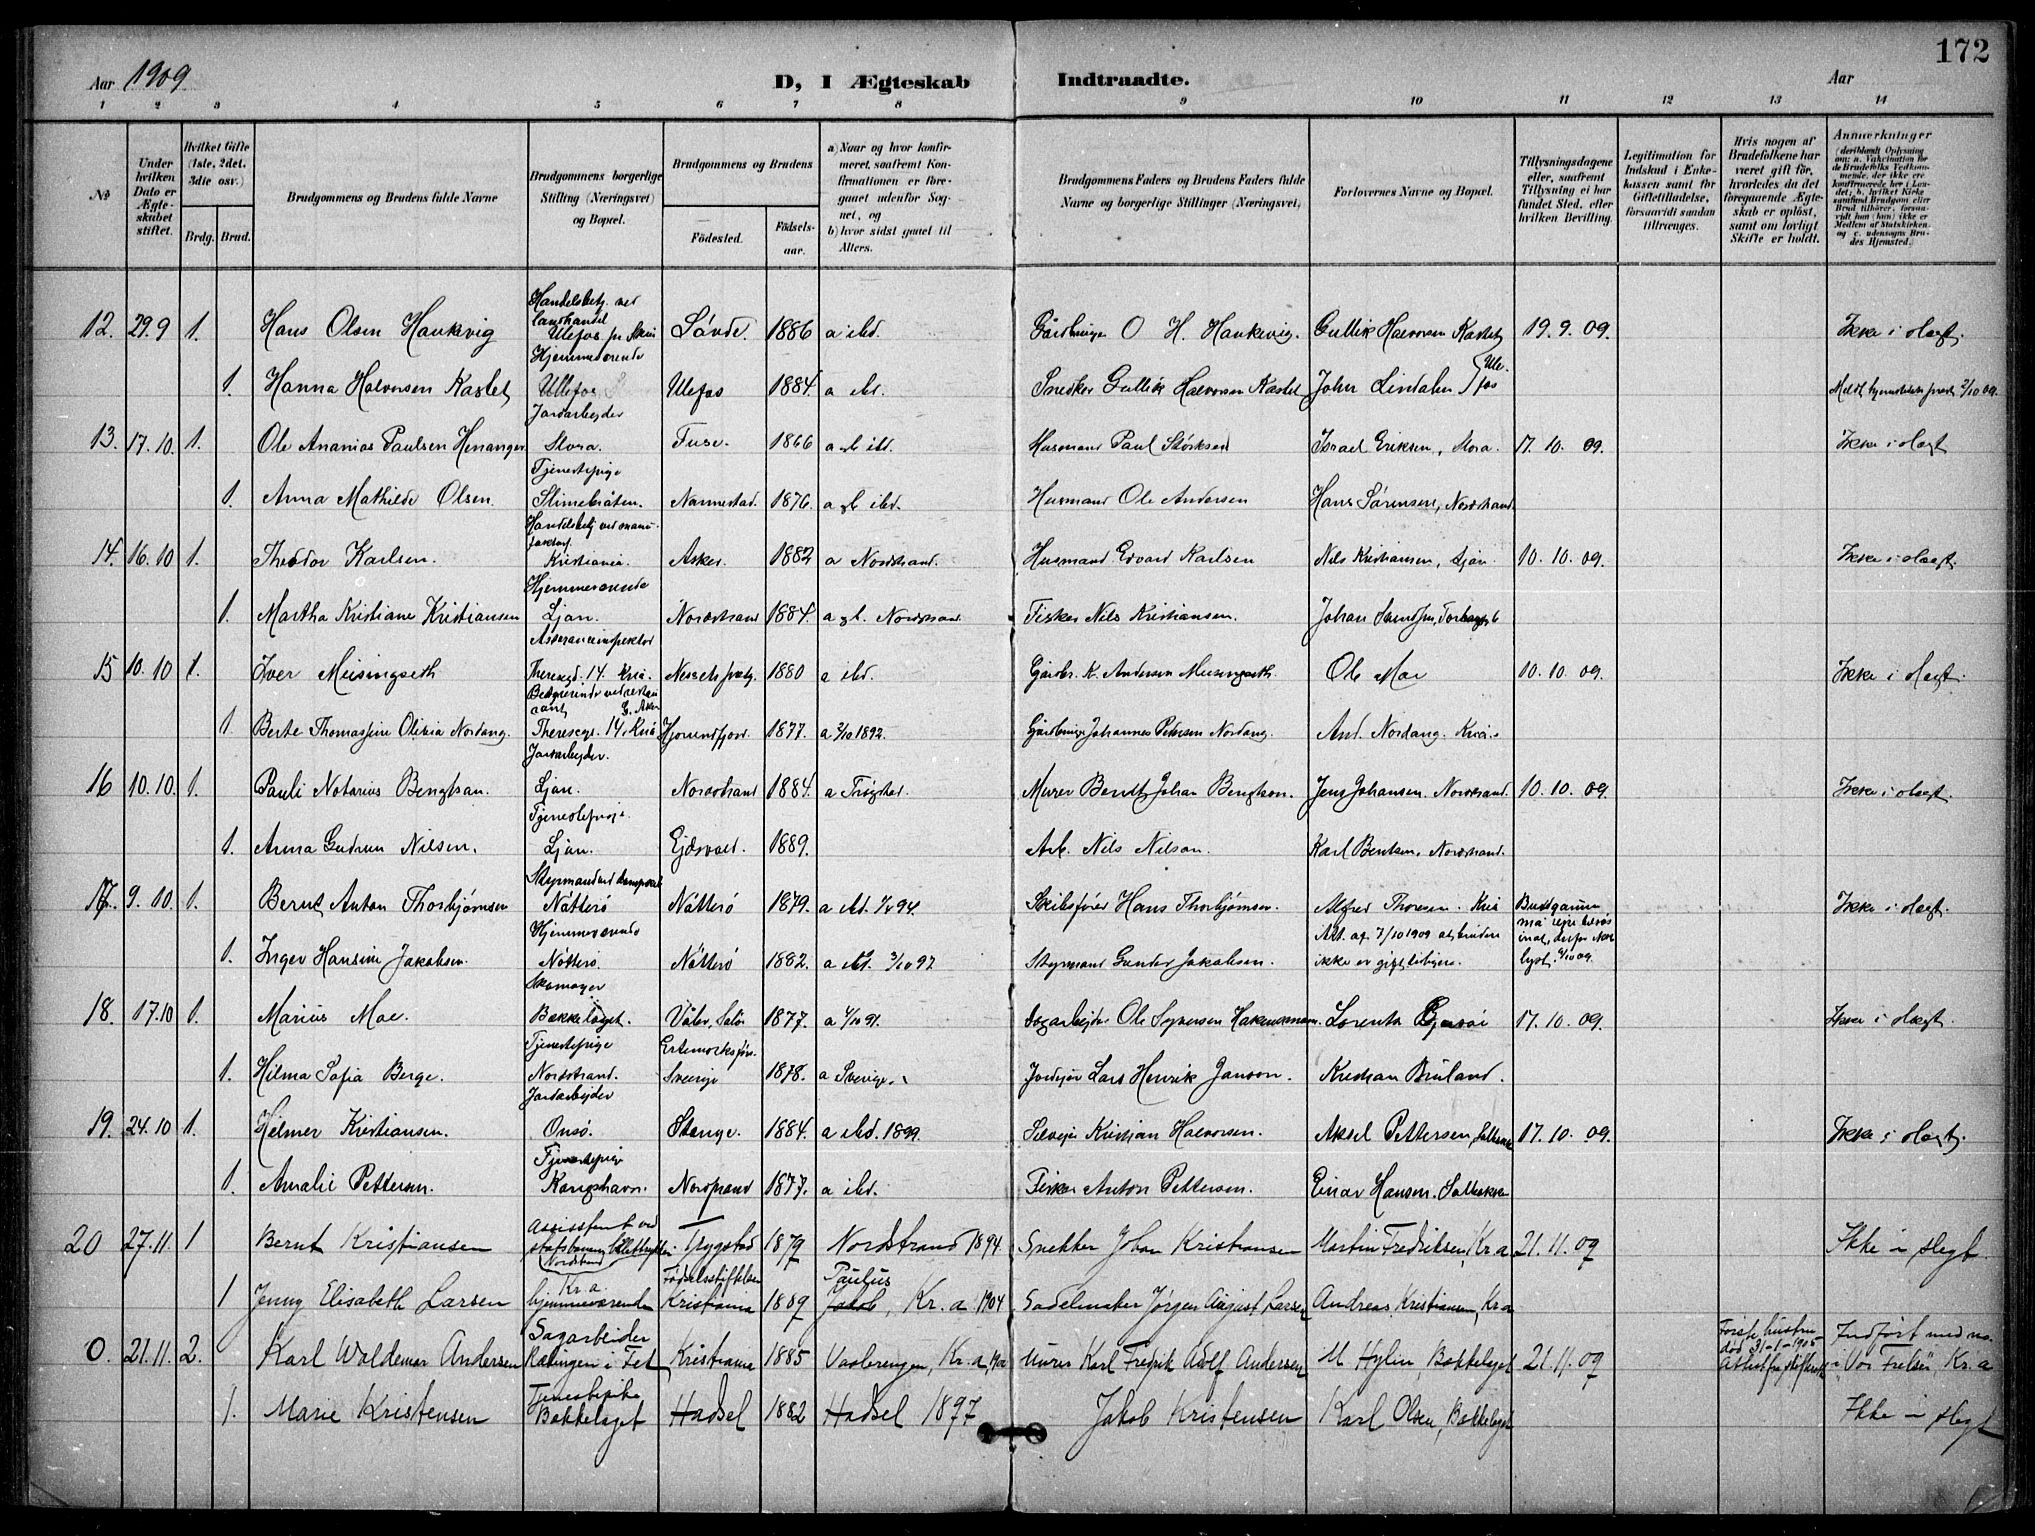 172
Aar 1909
D, I Ægteskab Indtraadte.
Aar
1 2 3 4 5 6 7 8 9 10 11 12 13 14
№
Under hvilken Dato er Ægteskabet stiftet.
Hvilket Gifte (1ste, 2det, 3die osv.)
Brdg. Brud.
Brudgommens og Brudens fulde Navne
Brudgommens borgerlige Stilling (Næringsvei) og Bopæl.
Brudgommens og Brudens
Fødested. Fødselsaar.
a) Naar og hvor konfirmeret, saafremt Konfirmationen er foregaaet udenfor Sognet, og
b) hvor sidst gaaet til Alters.
Brudgommens Faders og Brudens Faders fulde Navne og borgerlige Stillinger (Næringsvei)
Forlovernes Navne og Bopæl.
Tillysningsdagene eller, saafremt Tillysning ei har fundet Sted, efter hvilken Bevilling.
Legitimation for Indskud i Enkekassen samt for Giftetilladelse, forsaavidt saadan tiltrænges.
Hvis nogen af Brudefolkene har været gift før, hvorledes da det foregaaende Ægteskab er opløst, samt om lovligt Skifte er holdt.
Anmærkninger (deriblandt Oplysning om: a. Vakcination for de Brudefolks Vedkommende, der ikke ere konfirmerede her i Landet; b. hvilket Kirkesamfund Brudgom eller Brud tilhører, forsaavidt han (hun) ikke er Medlem af Statskirken, og c. udensogns Brudes Hjemsted.)
12. 29.9 1. Hans Olsen Haukvig Handelsbetj. ved landhandel Ulefos Søvde. 1886 a ibd. O. H. Haukvig. Gullik Halvorsen Kastet 19. 9. 09. Ikke i slægt.
1. Hanna Halvorsen Kastet Hjemmeværende Ulefos Ulefos 1884. a ibd. Snedker Gullik Halvorsen Kastet John Lindalen Ulefos 2/10 09.
13. 17.10. 1. Ole Ananias Paulsen Henanger Jordarbejder Stora. Fuse. 1866 a ibd. Husmand Paul Størksen Israel Eriksen, Stora. 17. 10. 09. Ikke i slægt
1. Anna Mathilde Olsen. Tjenestepige Slimebråten. Nannestad. 1876. a ibd. Husmand Ole Andersen Hans Sørensen, Nordstrand
14. 16.10 1. Theodor Karlsen. Handelsbetj. ved Kristiania. Asker. 1882 a Nordstrand. Husmand Edvard Karlsen Nils Kristiansen, Ljan. 10. 10. 09. Ikke i slægt.
1. Martha Kristiane Kristiansen Hjemmeværende Ljan. Nordstrand 1884. a Nordstrand. Fisker Nils Kristiansen. Johan
15 10.10 1. Iver Meisingseth Assuranceinspektor Theresegd. 14. Kria. 1880 a ibd. Gårdbr. K. Andersen Meisingseth. Ole Moe 10. 10. 09. Ikke i slægt.
1 Berte Thomasine Nordang. Theresegt. 14. Kria Hjørundfjord 1877. a 2/10 1892. Johannes Petersen Nordang. And. Nordang. Kria.
16 10.10. 1. Pauli Notarius Bengtsen. Jordarbejder. Ljan. Nordstrand 1884. a Murer Berndt Johan Bengtson. Jens Johansen. Nordstrand. 10. 10. 09. Ikke i slægt.
1. Anna Gudrun Nilsen. Tjenestepige. Ljan. Ejdsvold. 1889. Arb. Nils Nilsen. Karl Bentsen, Nordstrand.
17. 9.10. 1. Bernt Anton Thorbjørnsen Nøtterø Nøtterø 1879. a 94. Skibsfører Hans Thorbjørnsen. Alfred Thoresen. Kria Brudgommen må rejse Ikke i slægt.
1. Inger Hansine Jakobsen. Hjemmeværende Nøtterø. Nøtterø 1882. a 3/10 97 Styrmand Gunder Jakobsen. Att. af 7/10 1909 at bruden ikke er gift tidligere.
18. 17.10 1. Marius Moe. Skomager Bækkelaget. Våler, Solør 1877. a 4/10 91. Dagarbejder Ole Syversen 17. 10. 09. Ikke i slægt.
1. Hilma Sofia Berge. Tjenestepige Nordstrand. Sverige 1878. a Sverige. Lars Henrik Janson. Kristian Bruland.
19. 24.10 1. Helmer Kristiansen. Jordarbejder Onsø. Stange. 1884. a ibd. 1899. Kristian Halvorsen. Aksel Pettersen, 17. 10. 09. Ikke i slægt.
1. Amalie Pettersen. Tjenestepige Kongshavn. Nordstrand 1877. a ibd. Fisker Anton Pettersen. Einar Hansen.
20 27.11. 1 Bernt Kristiansen Assistent ved statsbanen Nordstrand Trygstad 1879 Nordstrand 1894 Snekker Johan Kristiansen Martin Fredriksen, Kr.a 21.11.09 Ikke i slegt.
1 Jenny Elisabeth Larsen Kr.a hjemmeværende Fødselsstiftelsen Kristiania 1889 Paulus Jakob, Kr.a 1904 Sadelmaker Jørgen August Larsen Andreas Kristiansen, Kr.a
0. 21.11. 2. Karl Waldemar Andersen Sagarbeider Rælingen i Fet Kristiania 1885 Vaalerengen, Kr.a, Murer Karl Fredrik Adolf Andersen M. Hylin, Bækkelaget 21.11.09 Første hustru død 31-1-1905 Indført med no. i Vor Frelser, Kr.a
1. Marie Kristensen Tjenestepike Bækkelaget Hadsel 1882 Hadsel 1897 Jakob Kristensen Karl Olsen, Bækkelaget Ikke i slegt